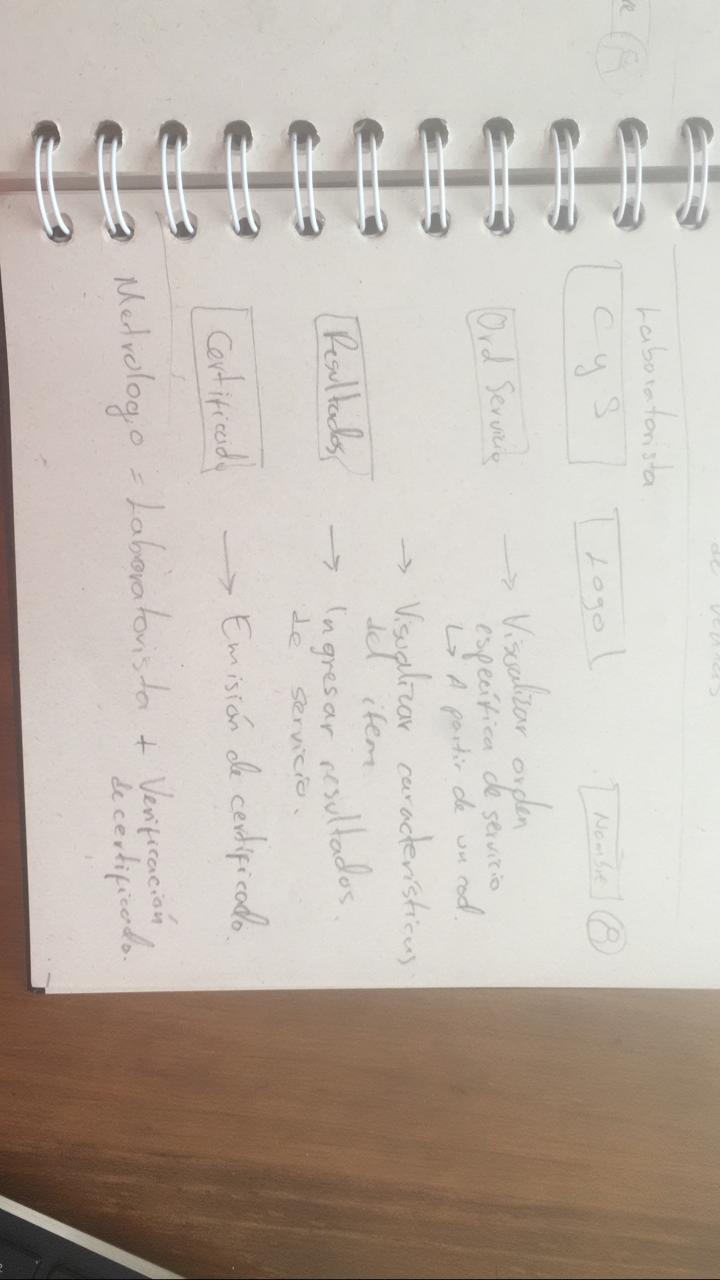 de ventas
Laboratorista
C y S
Logo
Nombre
Ord Servicio
→ Visualizar orden
específica de servicio
↳ A partir de un cod.
→ Visualizar características
del item
Resultados
→ Ingresar resultados
de servicio.
Certificado
→ Emisión de certificado.
Metrologo = Laboratorista + Verificación
de certificado.